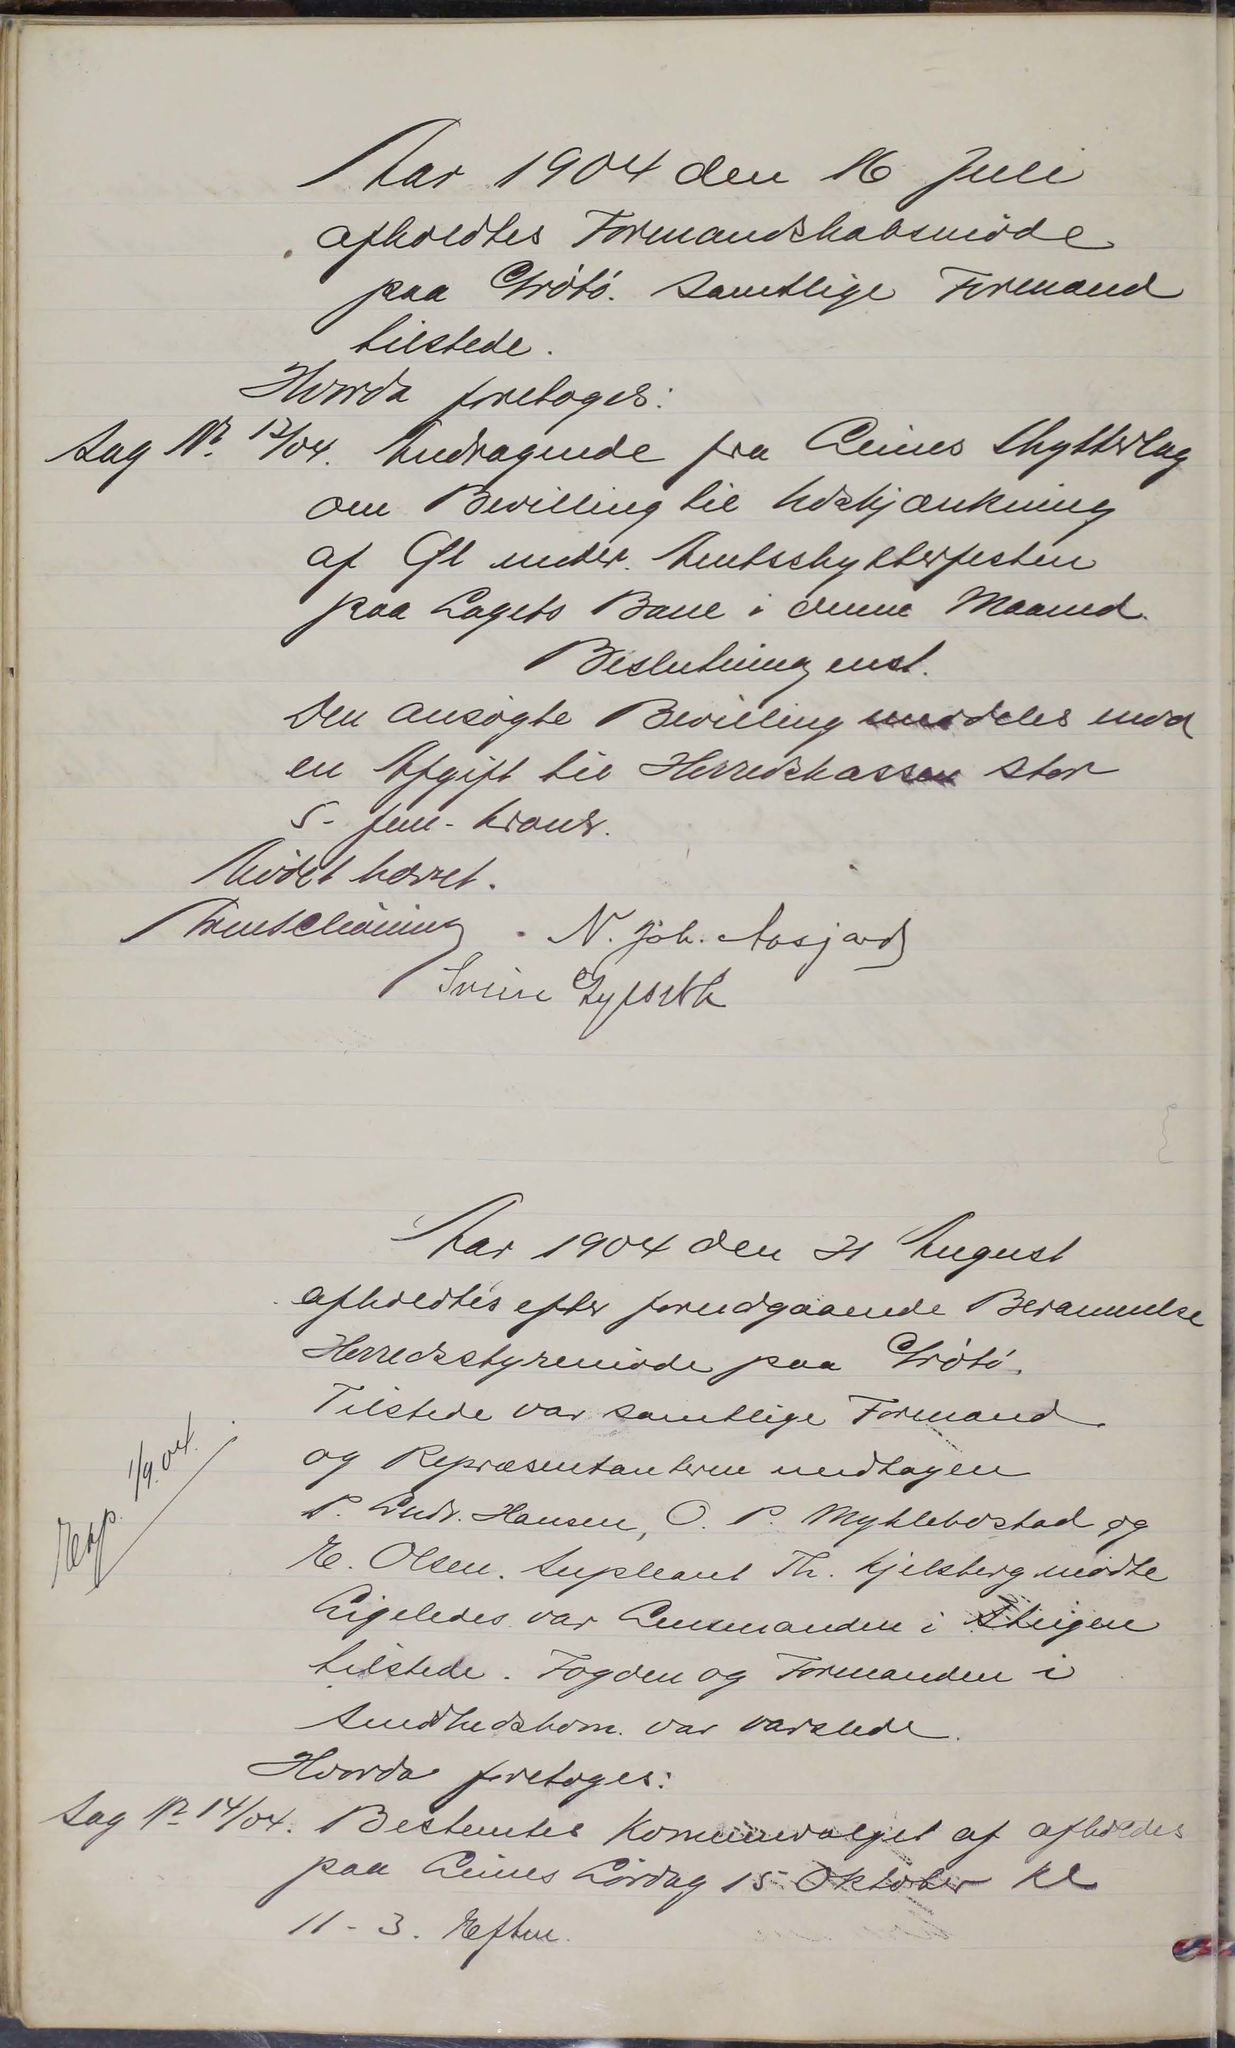 Aar 1904 den 16 Juli
afholdtes Formandskabsmøde
paa Grøtø. Samtlige Formænd
tilstede.
Hvorda foretoges:
Sag Nr. 12/04. Andragende fra Leines Skytterlag
om Bevilling til Udskjænkning
af Øl under Amtsskytterfesten
paa Lagets Bane i denne Maaned.
Beslutning enst.
Den ansøgte Bevilling meddeles mod
en Afgift til Herredskassen stor
5 - fem - kroner.
Mødet hævet.
N. Joh. Aasjord
Schøning
Aar 1904 den 31 August
afholdtes efter forudgaaende Berammelse
Herredsstyremøde paa Grøtø.
Tilstede var samtlige Formænd
og Repræsentanterne undtagen
P. Andr. Hansen, O. P. Myklebostad og
E. Olsen. Supleant Th. Kjelsberg mødte
Ligeledes var Lensmanden i Steigen
tilstede. Fogden og Formanden i
Sundhedskom. var varslede.
Exp. 1/9.04.
Hvorda foretoges:
Sag Nr 14/04. Bestemtes Komunevalget af afholdes
paa Leines Lørdag 15 Oktober Kl
11 - 3. Efterm.